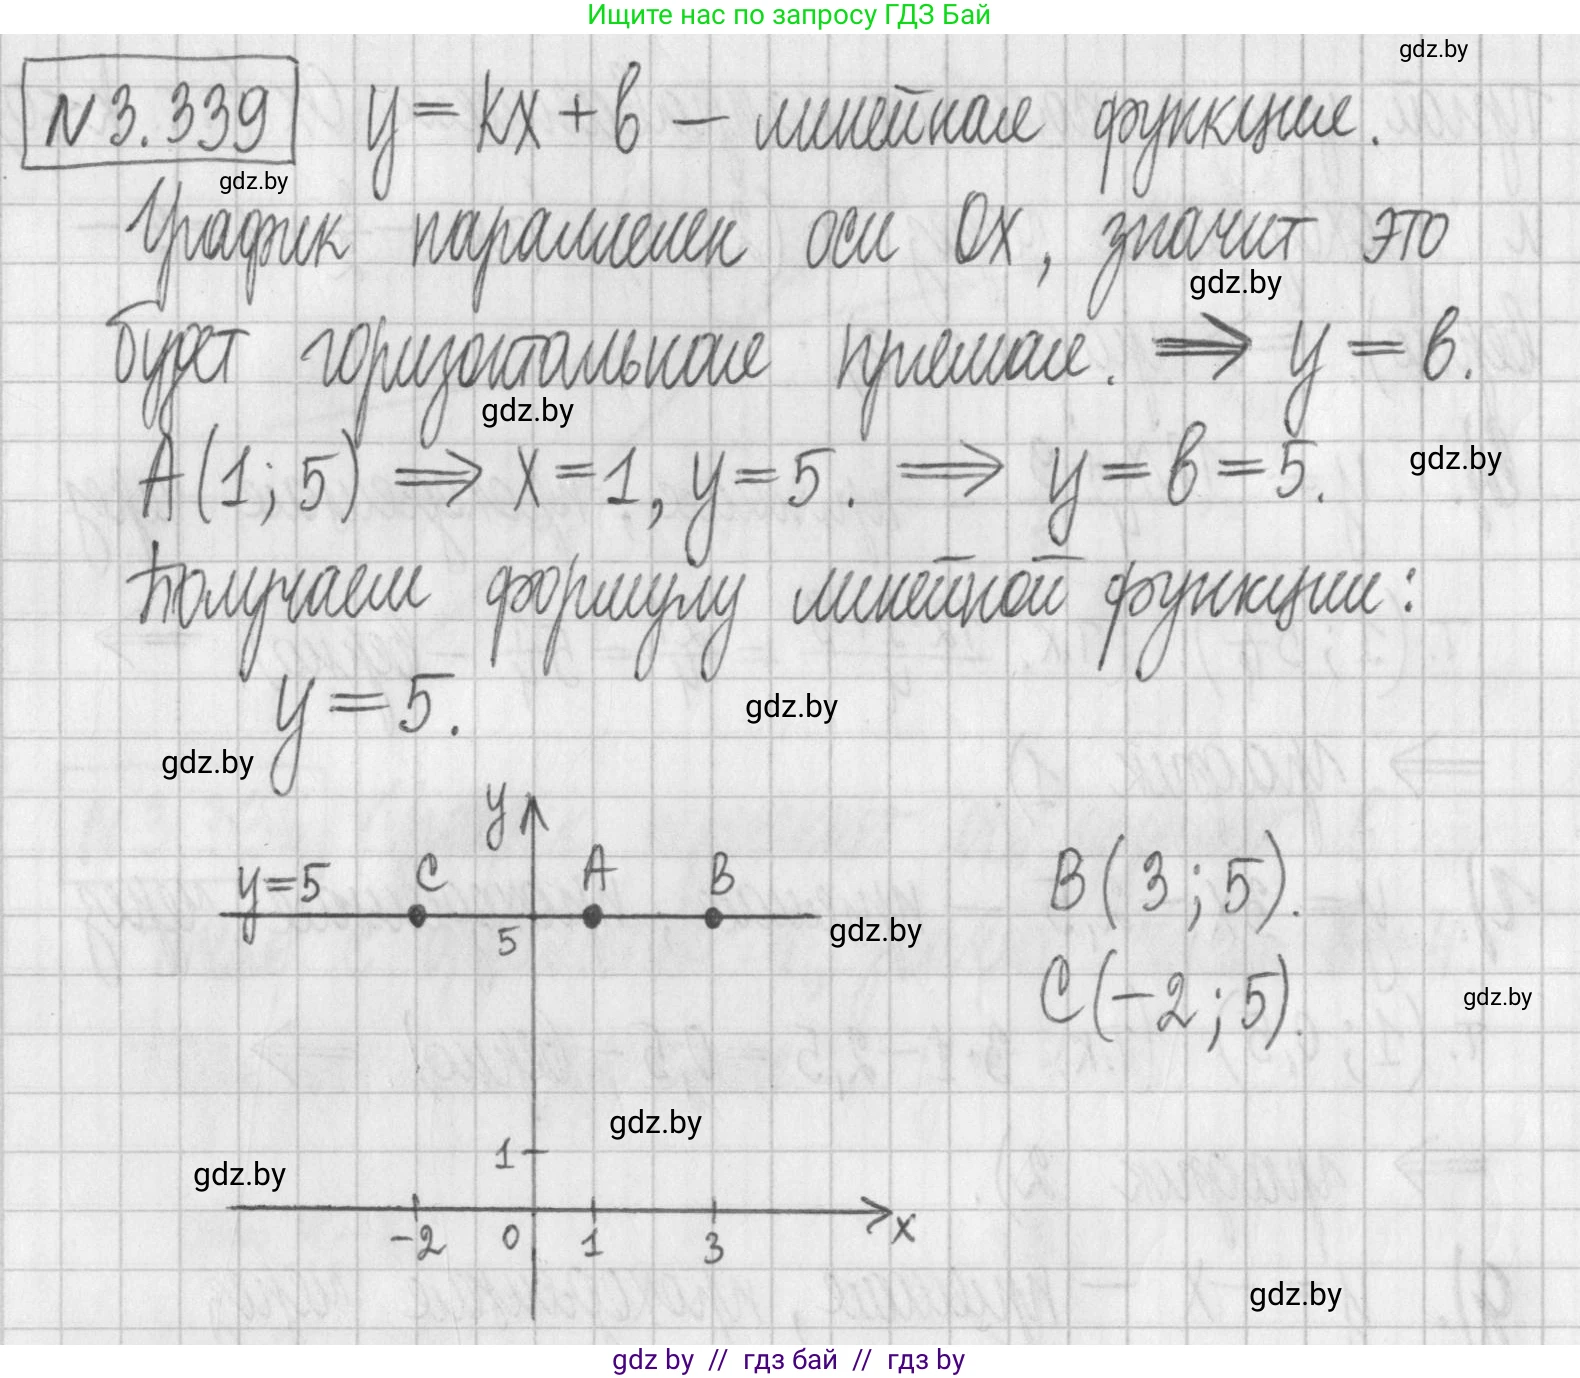 Ищите нас по запросу ГДЗ Бай
gdz.by
N 3.339 y = kx + b – линейная функция.
gdz.by
График параллелен оси Ox, значит это
gdz.by
будет горизонтальная прямая. ⟹ y = b.
gdz.by
A(1; 5) ⟹ x = 1, y = 5. ⟹ y = b = 5.
gdz.by
Получаем формулу линейной функции:
y = 5.
gdz.by
gdz.by
y
y=5 C A B
5
gdz.by
B(3; 5).
C(-2; 5).
gdz.by
gdz.by
1
gdz.by
-2 0 1 3 x
gdz.by
gdz by // гдз бай // гдз by